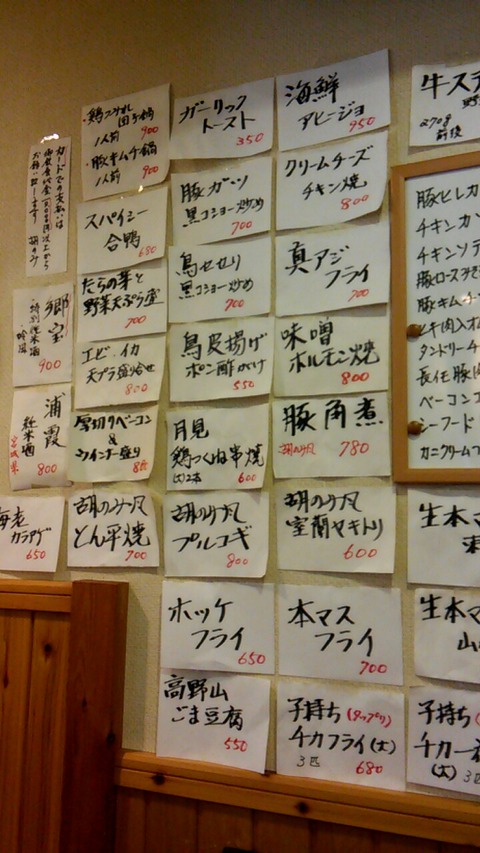 ・鶏つみれ
1人前 900
・豚キムチ鍋
1人前 900
ガーリック
トースト
350
海鮮
アヒージョ
950
牛ステ
270g
前後
カードでの支払いは
お願い致します
胡のみ
スパイシー
合鴨
680
豚ガツ
黒コショー炒め
700
クリームチーズ
チキン焼
800
たらの芽と
野菜天ぷら
700
鳥せせり
黒コショー炒め
700
真アジ
フライ
700
郷宝
特別純米酒
吟造
900
エビ・イカ
天プラ盛り合せ
800
鳥皮揚げ
ポン酢がけ
550
味噌
ホルモン焼
800
浦霞
純米酒
宮城県
800
厚切りベーコン
&
ウインナー盛り
月見
鶏つくね串焼
(大)2本
600
豚角煮
胡のみ風 780
海老
カラアゲ
650
胡のみ風
とん平焼
700
胡のみ風
プルコギ
800
胡のみ風
室蘭ヤキトリ
600
ホッケ
フライ
650
本マス
フライ
700
高野山
ごま豆腐
550
子持ち(タップリ)
チカフライ(大)
3匹 680
豚ヒレカ
チキンカツ
チキンソテ
豚ロース
豚キムチ
タンドリーチ
ベーコン
シーフード
カニクリーム
生本マ
生本マ
子持ち
チカ一
(大) 3